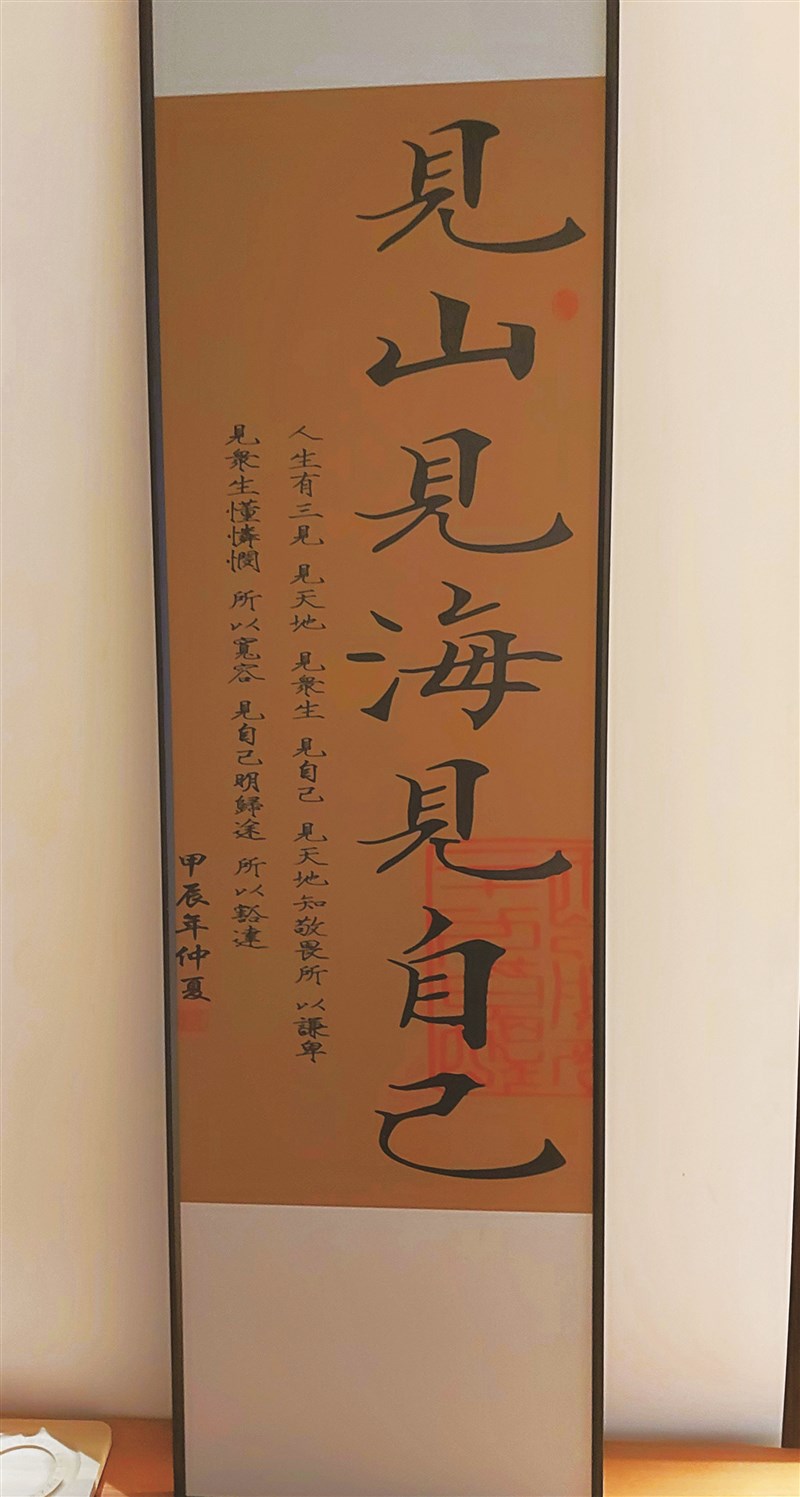 見山見海見自己
人生有三見 見天地 見衆生 見自己 見天地知敬畏所以謙卑
見衆生懂憐憫 所以寬容 見自己明歸途 所以豁達
甲辰年仲夏